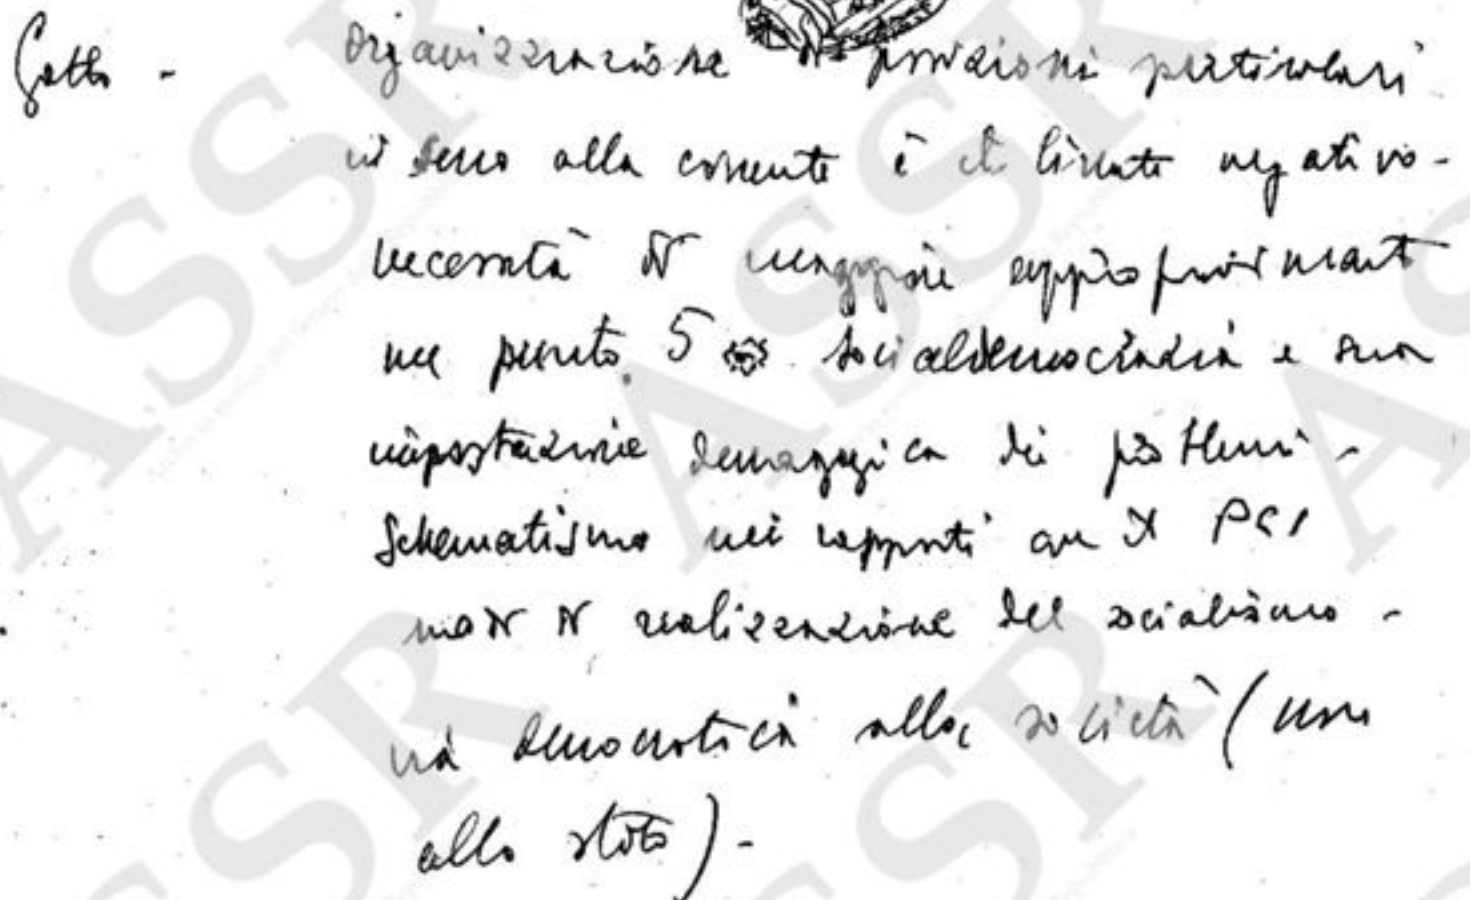 Gatto - organizzazione di posizioni particolari
in seno alla corrente è il limite negativo -
necessità di maggiore approfondimento
nel punto 5 socialdemocrazia e sua
impostazione demagogica dei problemi -
Schematismo nei rapporti con il PCI
modi di realizzazione del socialismo -
via democratica alla società (non
allo stato) -
ASSR